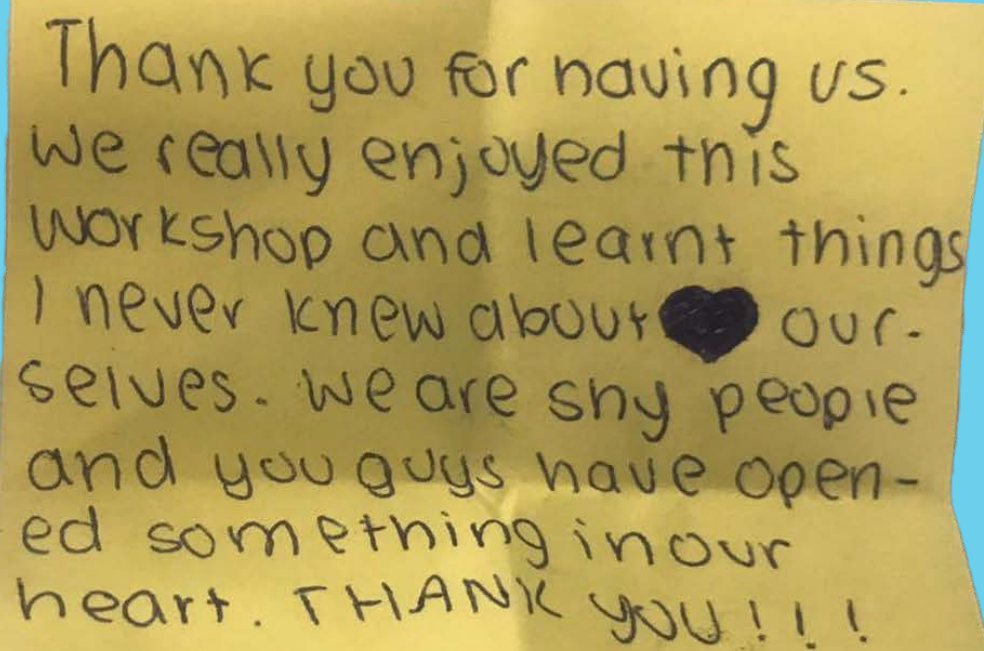 Thank you for having us.
We really enjoyed this
workshop and learnt things
I never knew about our-
selves. We are shy people
and you guys have open-
ed something in our
heart. THANK YOU!!!